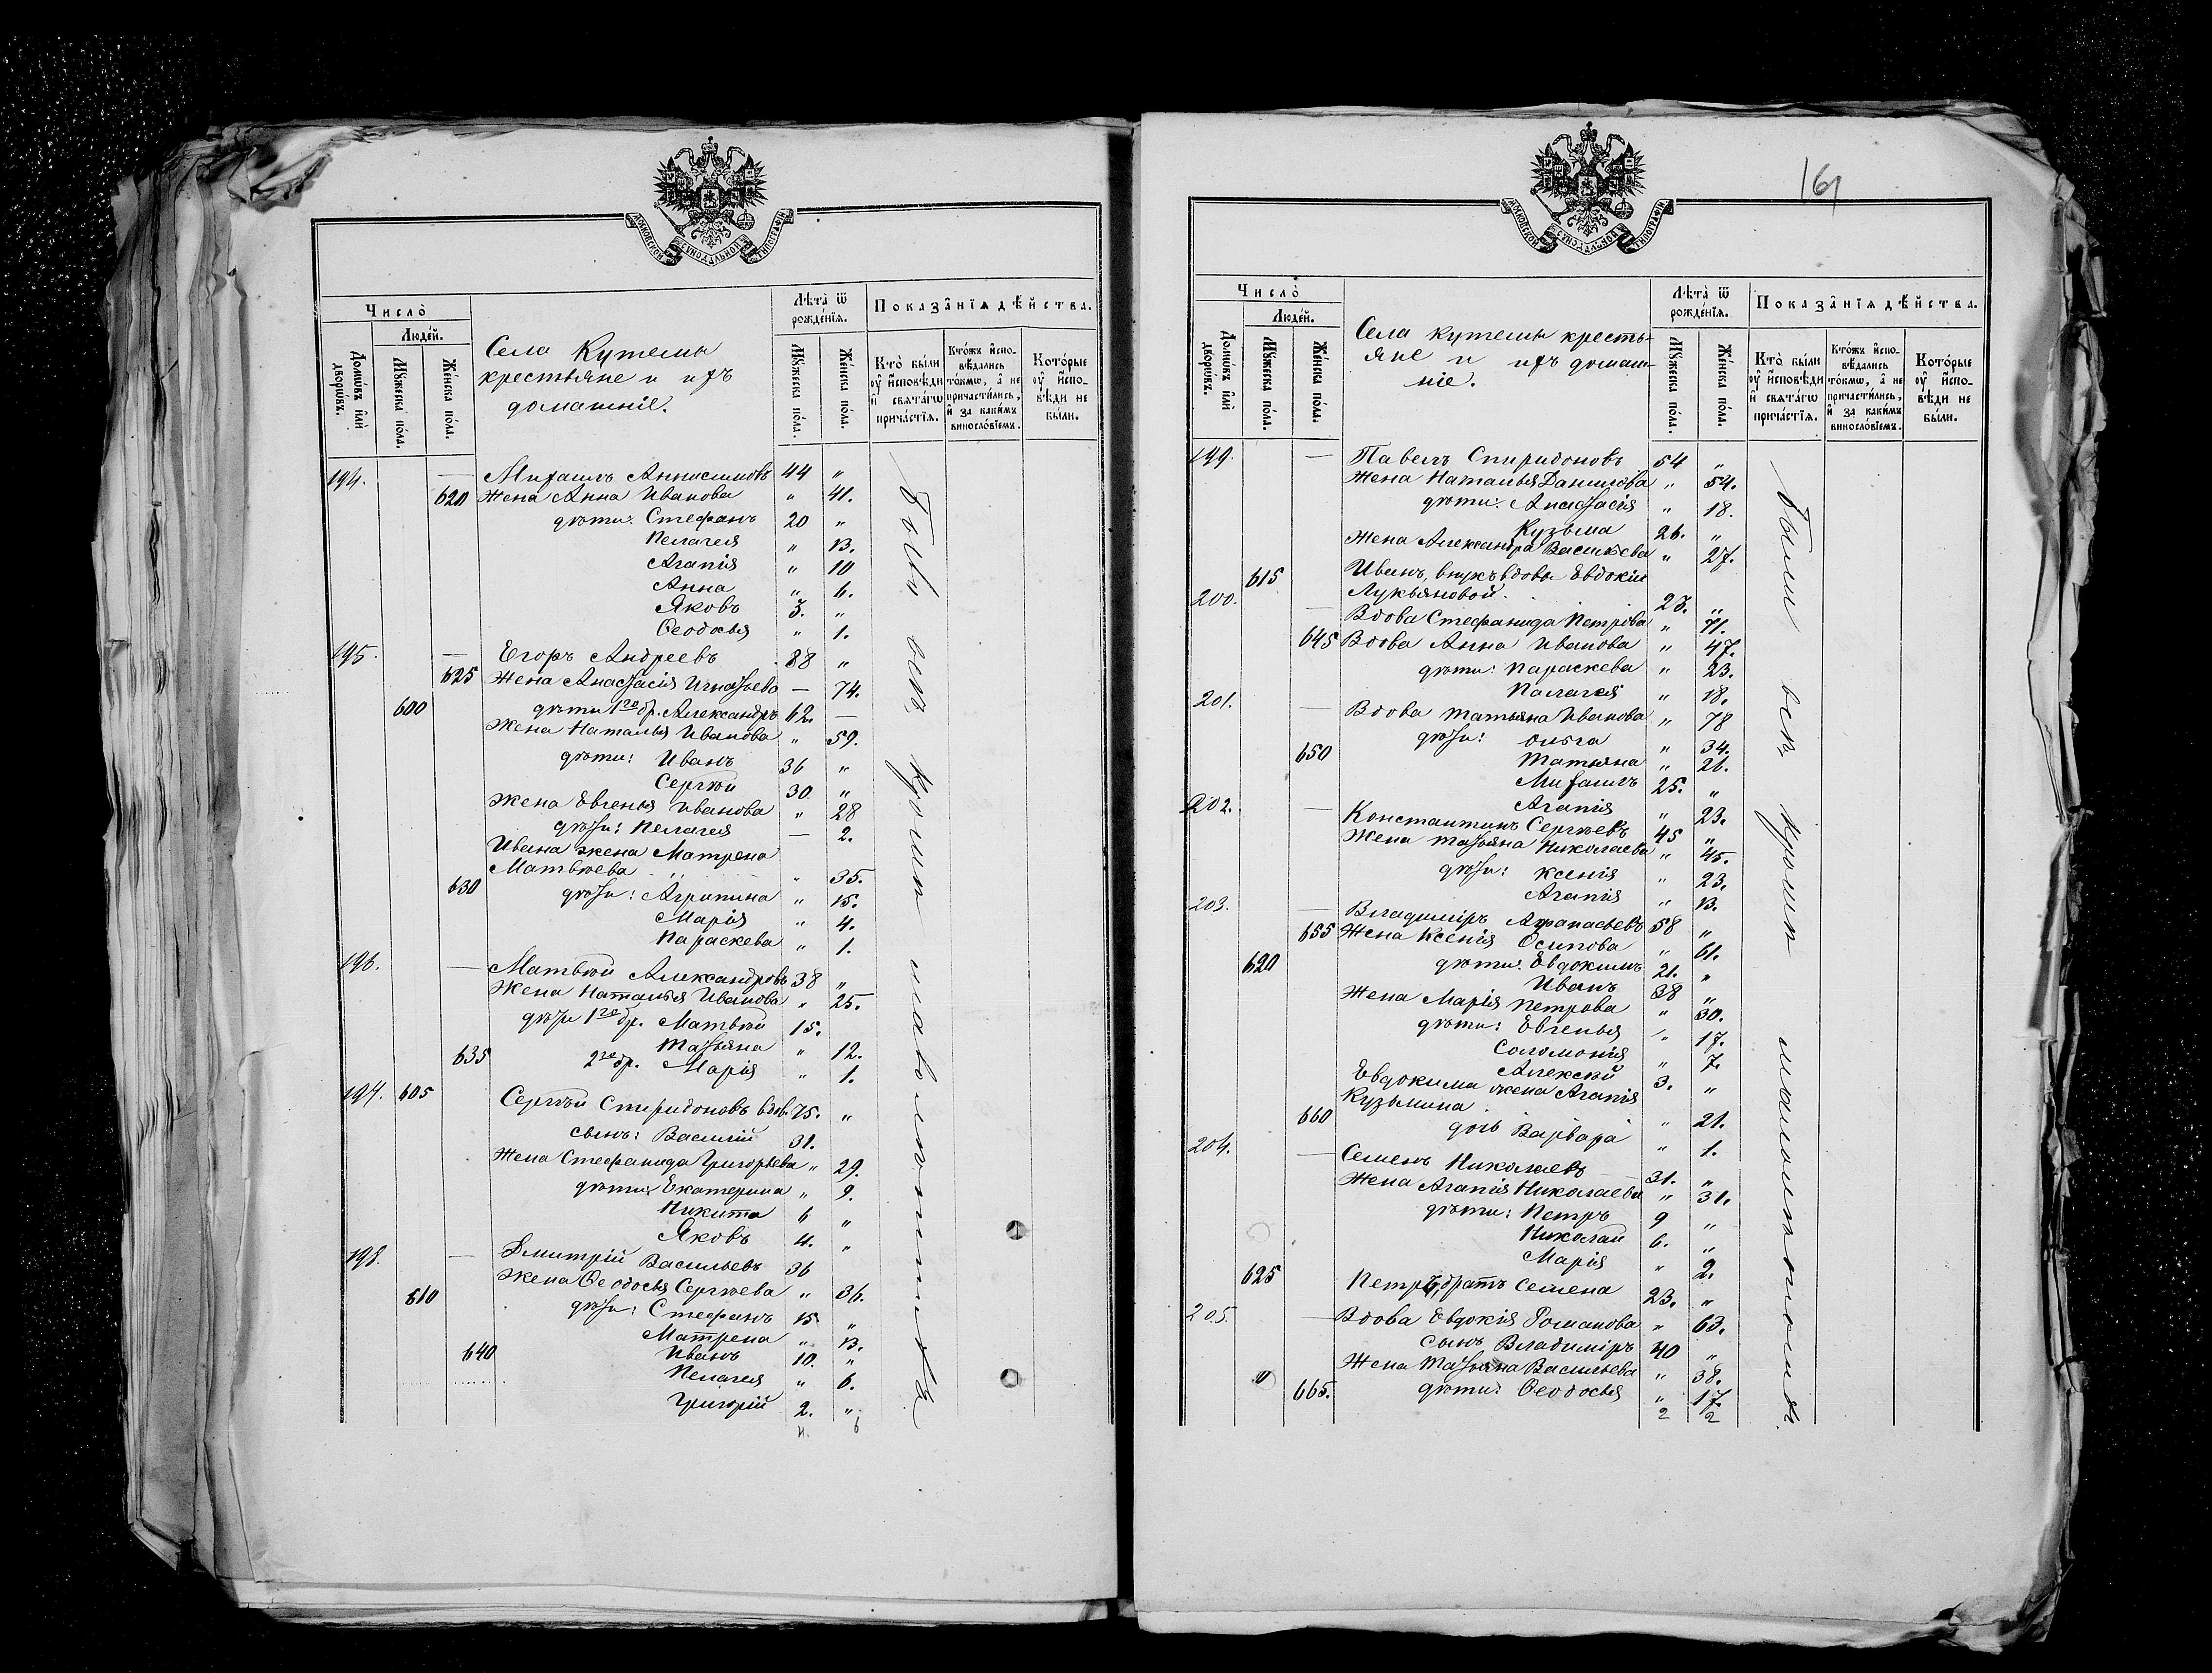 МОСКОВСКОЙ СѴНОДАЛЬНОЙ ТИПОГРАФІИ
Число̀
Люде́й.
Домѡ́въ и҆лѝ дворѡ́въ.
Мꙋ́жеска по́ла.
Же́нска по́ла.
Села Кутемы
крестьяне и ихъ
домашніе.
Лѣта̀ ѿ рожде́нїѧ.
Мꙋ́жеска по́ла.
Же́нска по́ла.
Показа̑нїѧ дѣ́йства.
Кто̀ бы́ли ᲂу҆ и҆сповѣди и҆ свѧта́гѡ прича́стїѧ.
Кто́жъ и҆спо-вѣдались то́кмѡ, а҆ не причасти́лись, и҆ за каки́мъ винословїемъ.
Кото́рые ᲂу҆ и҆спо-вѣди не бы́ли.
194. — Михаилъ Аннисимовъ 44 "
620 Жена Анна Иванова " 41.
дѣти: Стефанъ 20 "
Пелагея " 13.
Агапія " 10
Анна " 6.
Яковъ 3. "
Ѳеодосья " 1.
195. — Егоръ Андреевъ 88 "
625 Жена Анастасія Игнатьева — 74.
600 дѣти 1го бр. Александръ 62. —
Жена Наталья Иванова " 59.
дѣти: Иванъ 36 "
Сергѣй 30 "
Жена Евгенья Иванова " 28
дѣти: Пелагея — 2.
Ивана жена Матрена
Матвѣева " 35.
630 дѣти: Агрипина " 15.
Марія " 4.
Параскева " 1.
196. — Матвѣй Александровъ 38 "
Жена Наталья Иванова " 25.
дѣти 1го бр. Матвѣй 15.
Татьяна " 12.
635 2го бр. Марія " 1.
197. 605 Сергѣй Спиридоновъ вдов. 75. "
сынъ: Василій 31.
Жена Стефанида Григорьева " 29.
дѣти: Екатерина " 9.
Никита 6 "
Яковъ 4. "
198. — Дмитрій Васильевъ 36
Жена Ѳеодосья Сергѣева " 36.
610 дѣти: Стефанъ 15 "
Матрена " 13.
Иванъ 10. "
640 Пелагея " 6.
Григорій 2. "
Были всѣ кромѣ малолѣтнихъ
161
МОСКОВСКОЙ СѴНОДАЛЬНОЙ ТИПОГРАФІИ
Число̀
Люде́й.
Домѡ́въ и҆лѝ дворѡ́въ.
Мꙋ́жеска по́ла.
Же́нска по́ла.
Села Кутемы кресть-
яне и ихъ домаш-
ніе.
Лѣта̀ ѿ рожде́нїѧ.
Мꙋ́жеска по́ла.
Же́нска по́ла.
Показа̑нїѧ дѣ́йства.
Кто̀ бы́ли ᲂу҆ и҆сповѣди и҆ свѧта́гѡ прича́стїѧ.
Кто́жъ и҆спо-вѣдались то́кмѡ, а҆ не причасти́лись, и҆ за каки́мъ винословїемъ.
Кото́рые ᲂу҆ и҆спо-вѣди не бы́ли.
199. — Павелъ Спиридоновъ 54 "
Жена Наталья Данилова " 54.
дѣти: Анастасія " 18.
Кузьма 26. "
Жена Александра Васильева " 27.
615 Иванъ, внукъ вдовы Евдокіи
Лукьяновой. 23. "
200. — Вдова Стефанида Петрова " 71.
645 Вдова Анна Иванова " 47.
дѣти: Параскева " 23.
Палагея " 18.
201. — Вдова Татьяна Иванова " 78
дѣти: Ольга " 34.
650 Татьяна " 26.
Михаилъ 25. "
Агапія " 23.
202. — Константинъ Сергѣевъ 45 "
Жена Татьяна Николаева " 45.
дѣти: Ксенія " 23.
Агапія " 13.
203. — Владиміръ Афанасьевъ 58 "
655 Жена Ксенія Осипова " 61.
620 дѣти: Евдокимъ 21. "
Иванъ 38 "
Жена Марія Петрова " 30.
дѣти: Евгенья " 17.
Соломонія " 7.
Алексѣй 3. "
Евдокима жена Агапія
Кузьмина " 21.
660 дочь Варвара " 1.
204. — Семенъ Николаевъ 31. "
Жена Агапія Николаева " 31.
дѣти: Петръ 9 "
Николай 6. "
Марія " 2.
625 Петръ, братъ Семена 23. "
205. — Вдова Евдокія Романова " 63.
сынъ Владиміръ 40 "
Жена Татьяна Васильева " 38.
665. дѣти: Ѳеодосья " 17.
2 2
Были всѣ кромѣ малолѣтнихъ.